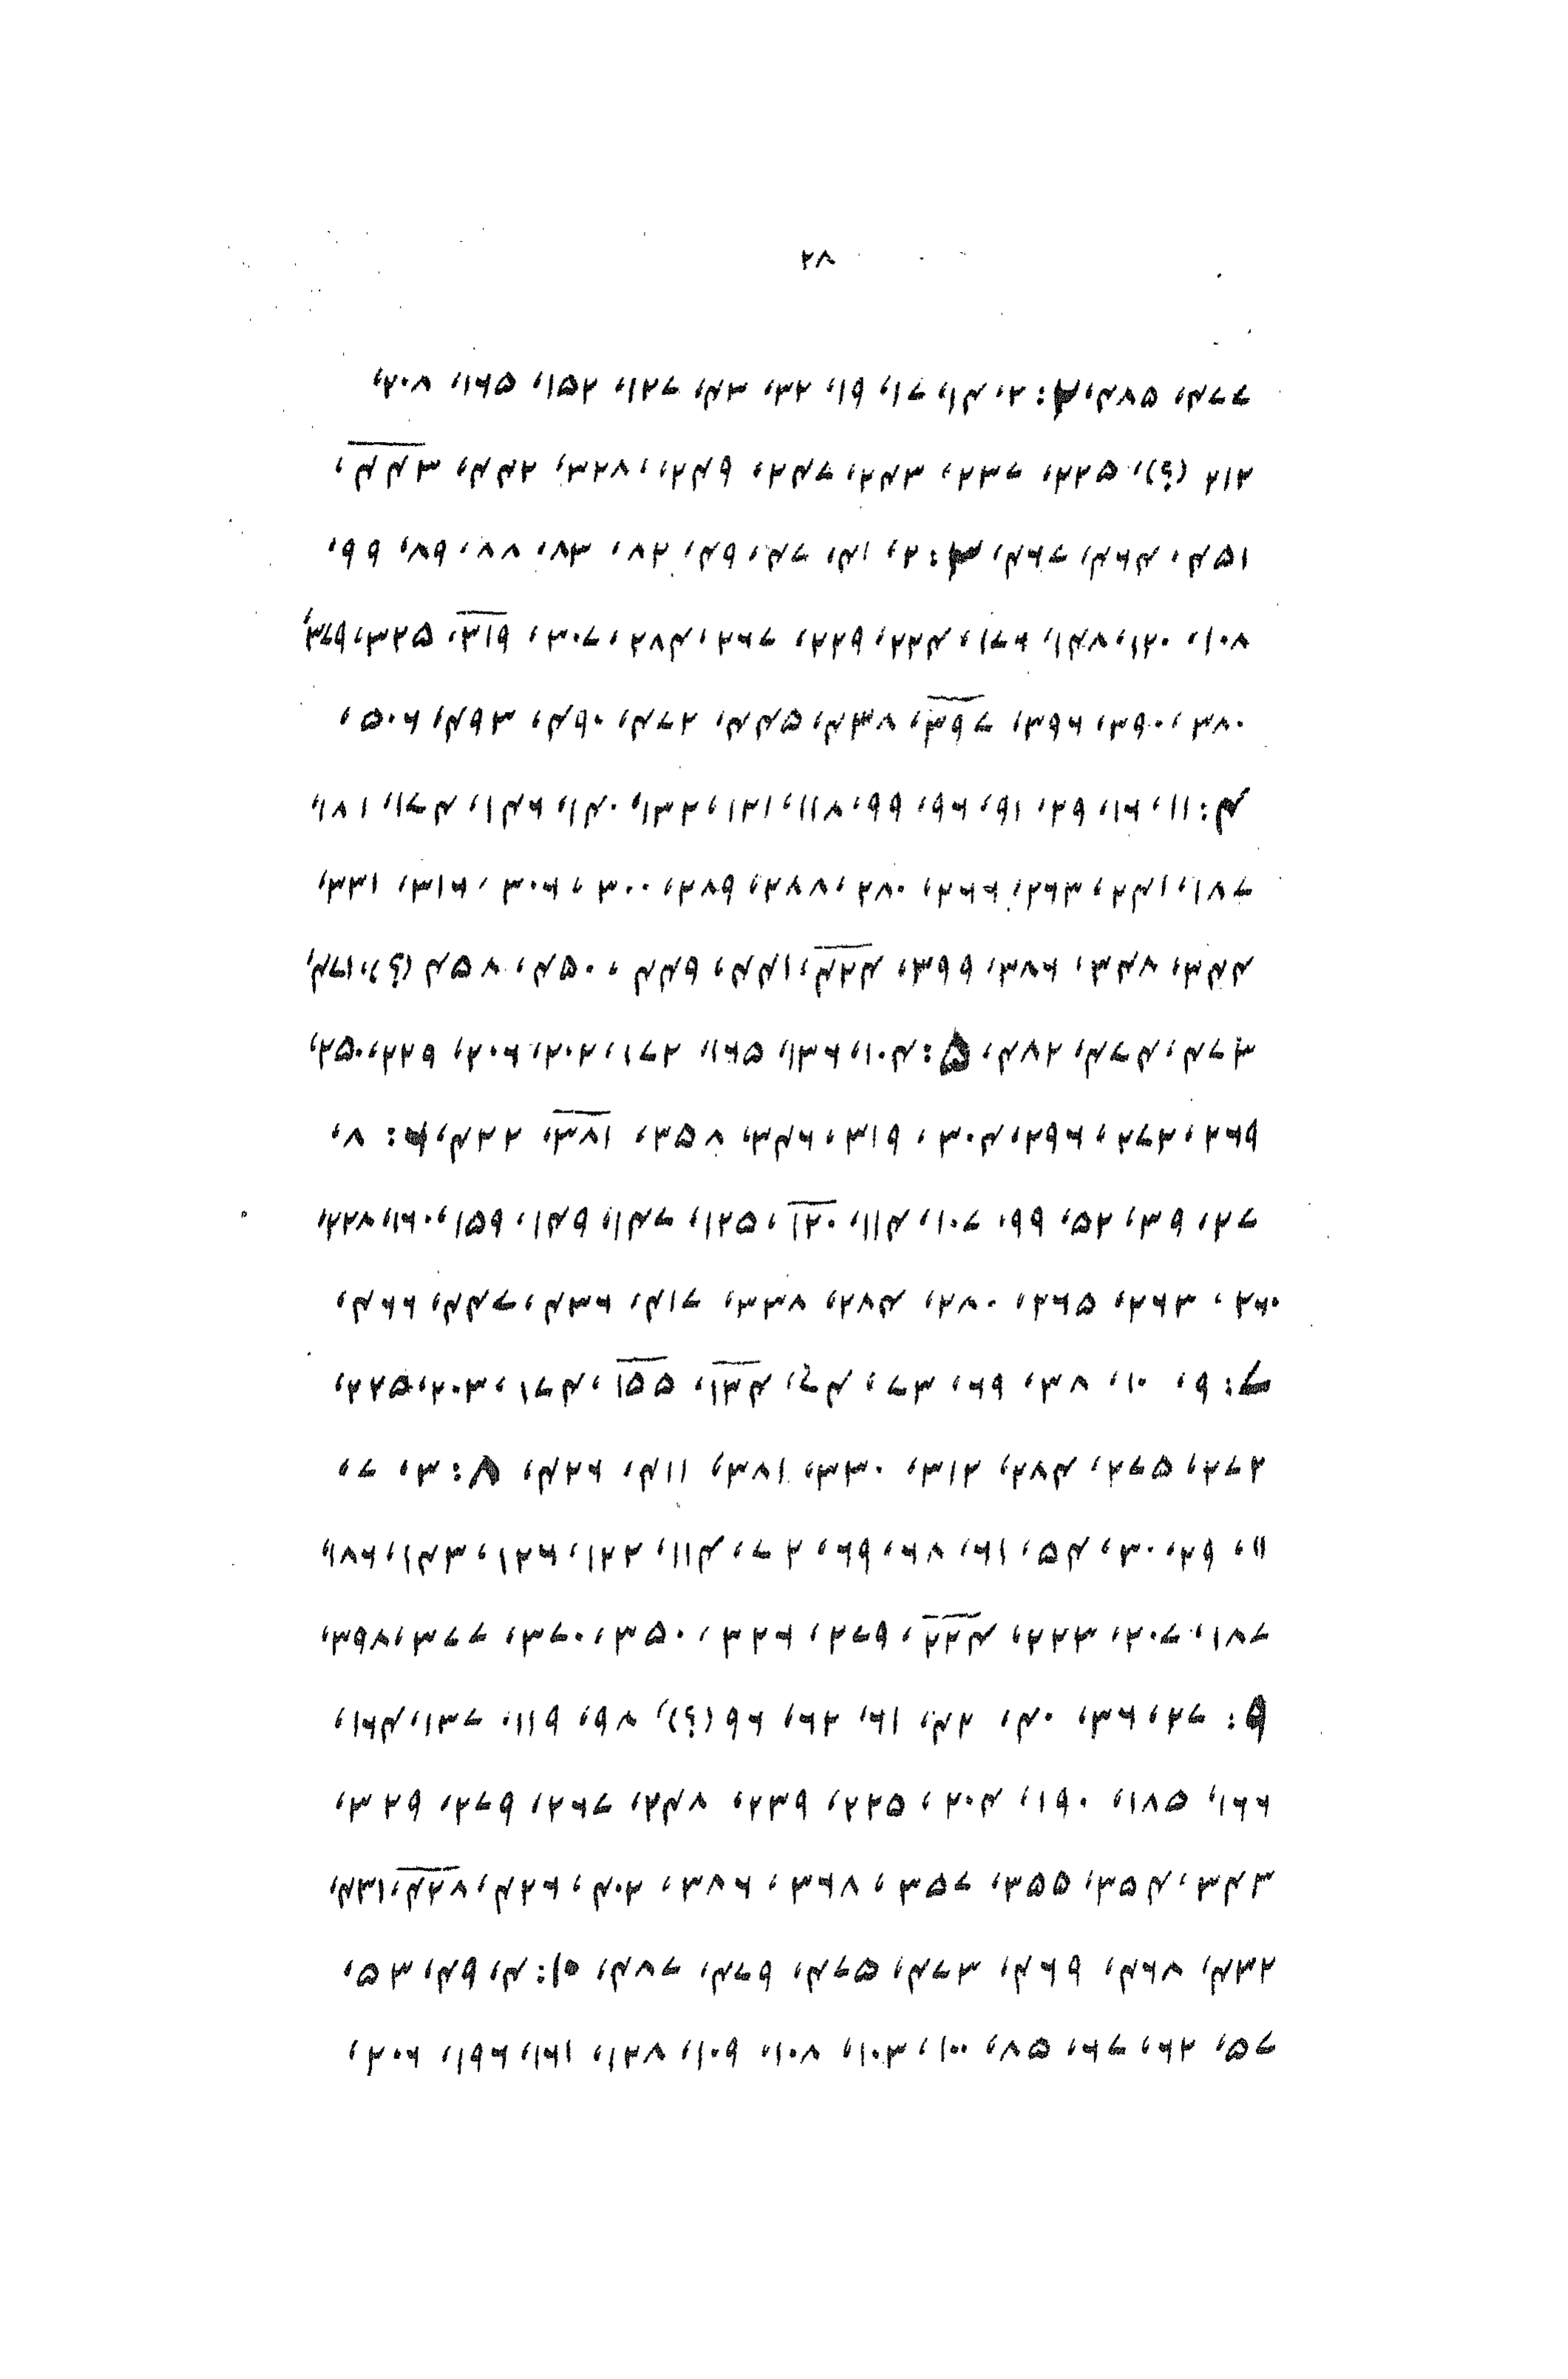 ۲۸
۴۷۷، ۴۸۵، ۲: ۲، ۱۴، ۱۷، ۱۹، ۳۲، ۴۳، ۱۲۷، ۱۵۲، ۱۶۵، ۲۰۸،
۲۱۲ (؟)، ۲۲۵، ۲۳۷، ۲۴۳، ۲۴۷، ۲۴۹، ۳۲۸، ۴۴۲، ۴۴۳،
۴۵۱، ۴۶۴، ۴۶۷، ۳: ۲، ۴۱، ۴۷، ۴۹، ۸۲، ۸۳، ۸۸، ۸۹، ۹۹،
۱۰۸، ۱۲۰، ۱۴۸، ۱۷۶، ۲۲۴، ۲۲۹، ۲۶۷، ۲۸۴، ۳۰۷، ۳۱۹، ۳۲۵، ۳۷۹،
۳۸۰، ۳۹۰، ۳۹۶، ۳۹۷، ۴۳۸، ۴۴۵، ۴۷۲، ۴۹۰، ۴۹۳، ۵۰۶،
۴: ۱۱، ۱۶، ۲۹، ۹۱، ۹۶، ۹۹، ۱۱۸، ۱۲۱، ۱۳۲، ۱۴۰، ۱۴۶، ۱۷۴، ۱۸۱،
۱۸۷، ۲۴۱، ۲۶۳، ۲۶۶، ۲۸۰، ۲۸۸، ۲۸۹، ۳۰۰، ۳۰۶، ۳۱۶، ۳۳۱،
۳۴۴، ۳۴۸، ۳۸۶، ۳۹۹، ۴۲۴، ۴۴۱، ۴۴۹، ۴۵۰، ۴۵۸ (؟)، ۴۷۱،
۴۷۳، ۴۷۴، ۴۸۲، ۵: ۱۰۴، ۱۳۶، ۱۶۵، ۱۷۲، ۲۰۲، ۲۰۶، ۲۲۹، ۲۵۰،
۲۶۹، ۲۷۳، ۲۹۶، ۳۰۴، ۳۱۹، ۳۴۶، ۳۵۸، ۳۸۱، ۴۲۲، ۶: ۸،
۲۷، ۳۹، ۵۲، ۹۹، ۱۰۷، ۱۱۴، ۱۲۰، ۱۲۵، ۱۴۷، ۱۴۹، ۱۵۹، ۱۶۰، ۲۲۸،
۲۶۰، ۲۶۳، ۲۶۵، ۲۸۰، ۲۸۴، ۳۳۸، ۴۱۷، ۴۳۶، ۴۴۷، ۴۶۶،
۷: ۹، ۱۰، ۳۸، ۶۹، ۷۳، ۷۴، ۱۳۴، ۱۵۵، ۱۷۴، ۲۰۳، ۲۲۵،
۲۷۲، ۲۷۵، ۲۸۴، ۳۱۲، ۳۳۰، ۳۸۱، ۴۱۱، ۴۲۶، ۸: ۳، ۷،
۱۱، ۲۹، ۳۰، ۵۴، ۶۱، ۶۸، ۶۹، ۷۲، ۱۱۴، ۱۲۲، ۱۲۶، ۱۴۳، ۱۸۶،
۱۸۷، ۲۰۷، ۲۲۳، ۲۲۴، ۲۷۹، ۳۲۶، ۳۵۰، ۳۷۰، ۳۷۷، ۳۹۸،
۹: ۲۷، ۳۶، ۴۰، ۴۲، ۶۱، ۶۲، ۶۹ (؟)، ۹۸، ۱۱۹، ۱۳۷، ۱۶۴،
۱۶۶، ۱۸۵، ۱۹۰، ۲۰۴، ۲۲۵، ۲۳۹، ۲۴۸، ۲۶۷، ۲۷۹، ۳۲۹،
۳۴۳، ۳۵۴، ۳۵۵، ۳۵۷، ۳۶۸، ۳۸۶، ۴۰۲، ۴۲۶، ۴۲۸، ۴۳۱،
۴۳۲، ۴۶۸، ۴۶۹، ۴۷۳، ۴۷۵، ۴۷۹، ۴۸۷، ۱۰: ۴، ۴۹، ۵۳،
۵۷، ۶۲، ۶۷، ۸۵، ۱۰۰، ۱۰۳، ۱۰۸، ۱۰۹، ۱۲۸، ۱۶۱، ۱۹۶، ۲۰۶،